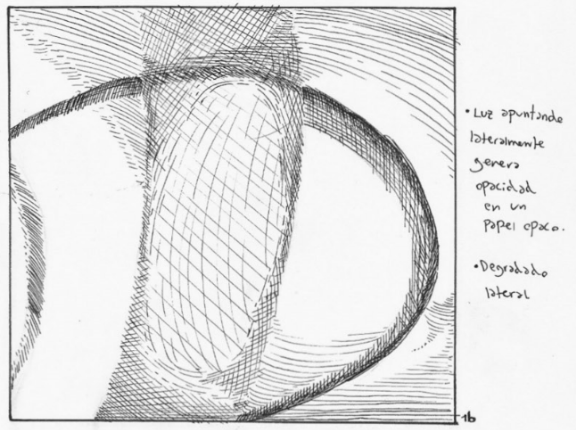 • Luz apuntando
lateralmente
genera
opacidad
en un
papel opaco.
• Degradado
lateral
1b